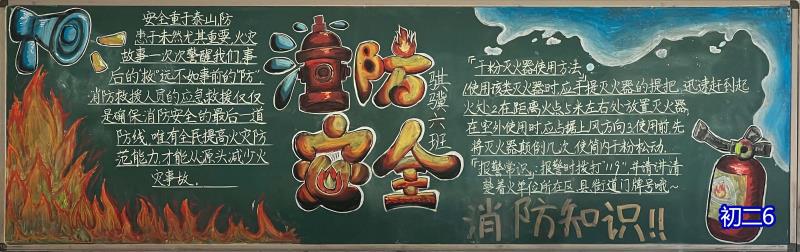 安全重于泰山,防
患于未然尤其重要,火灾
故事一次次警醒我们,事
后的救"远不如事前的"防".
消防救援人员的应急救援仅仅
是确保消防安全的最后一道
防线.唯有全民提高火灾防
范能力,才能从源头减少火
灾事故.
消防
安全
骐骥六班
「干粉灭火器使用方法」
1使用该类灭火器时应手提灭火器的提把,迅速赶到起
火处2.在距离火点5米左右处放置灭火器,
在室外使用时应占据上风方向3.使用前,先
将灭火器颠倒几次,使筒内干粉松动.
「报警常识」:报警时拨打"119",并请讲清
楚着火单位所在区县,街道,门牌号哦~
消防知识!!
初二6